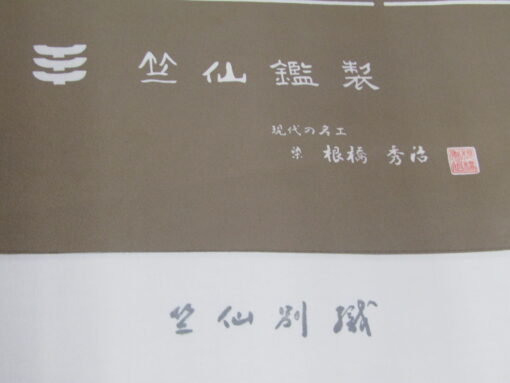 竺仙鑑製
現代の名工
染 根橋秀治
竺仙別織